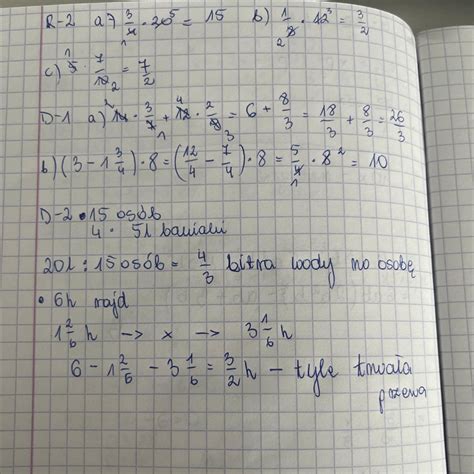 R-2 a) 7 3/4 · 20 5 = 15 b) 1/8 2 · 12 3 = 3/2
c) 1 5 · 7/10 2 = 7/2
D-1 a) 2 14 · 3/7 1 + 4 12 · 2/9 3 = 6 + 8/3 = 18/3 + 8/3 = 26/3
b) (3 - 1 3/4) · 8 = (12/4 - 7/4) · 8 = 5/4 1 · 8 2 = 10
D-2 • 15 osób
4 · 5l baniaki
20l : 15 osób = 4/3 litra wody na osobę
• 6h rajd
1 2/6 h -> x -> 3 1/6 h
6 - 1 2/6 - 3 1/6 = 3/2 h - tyle trwała
przerwa